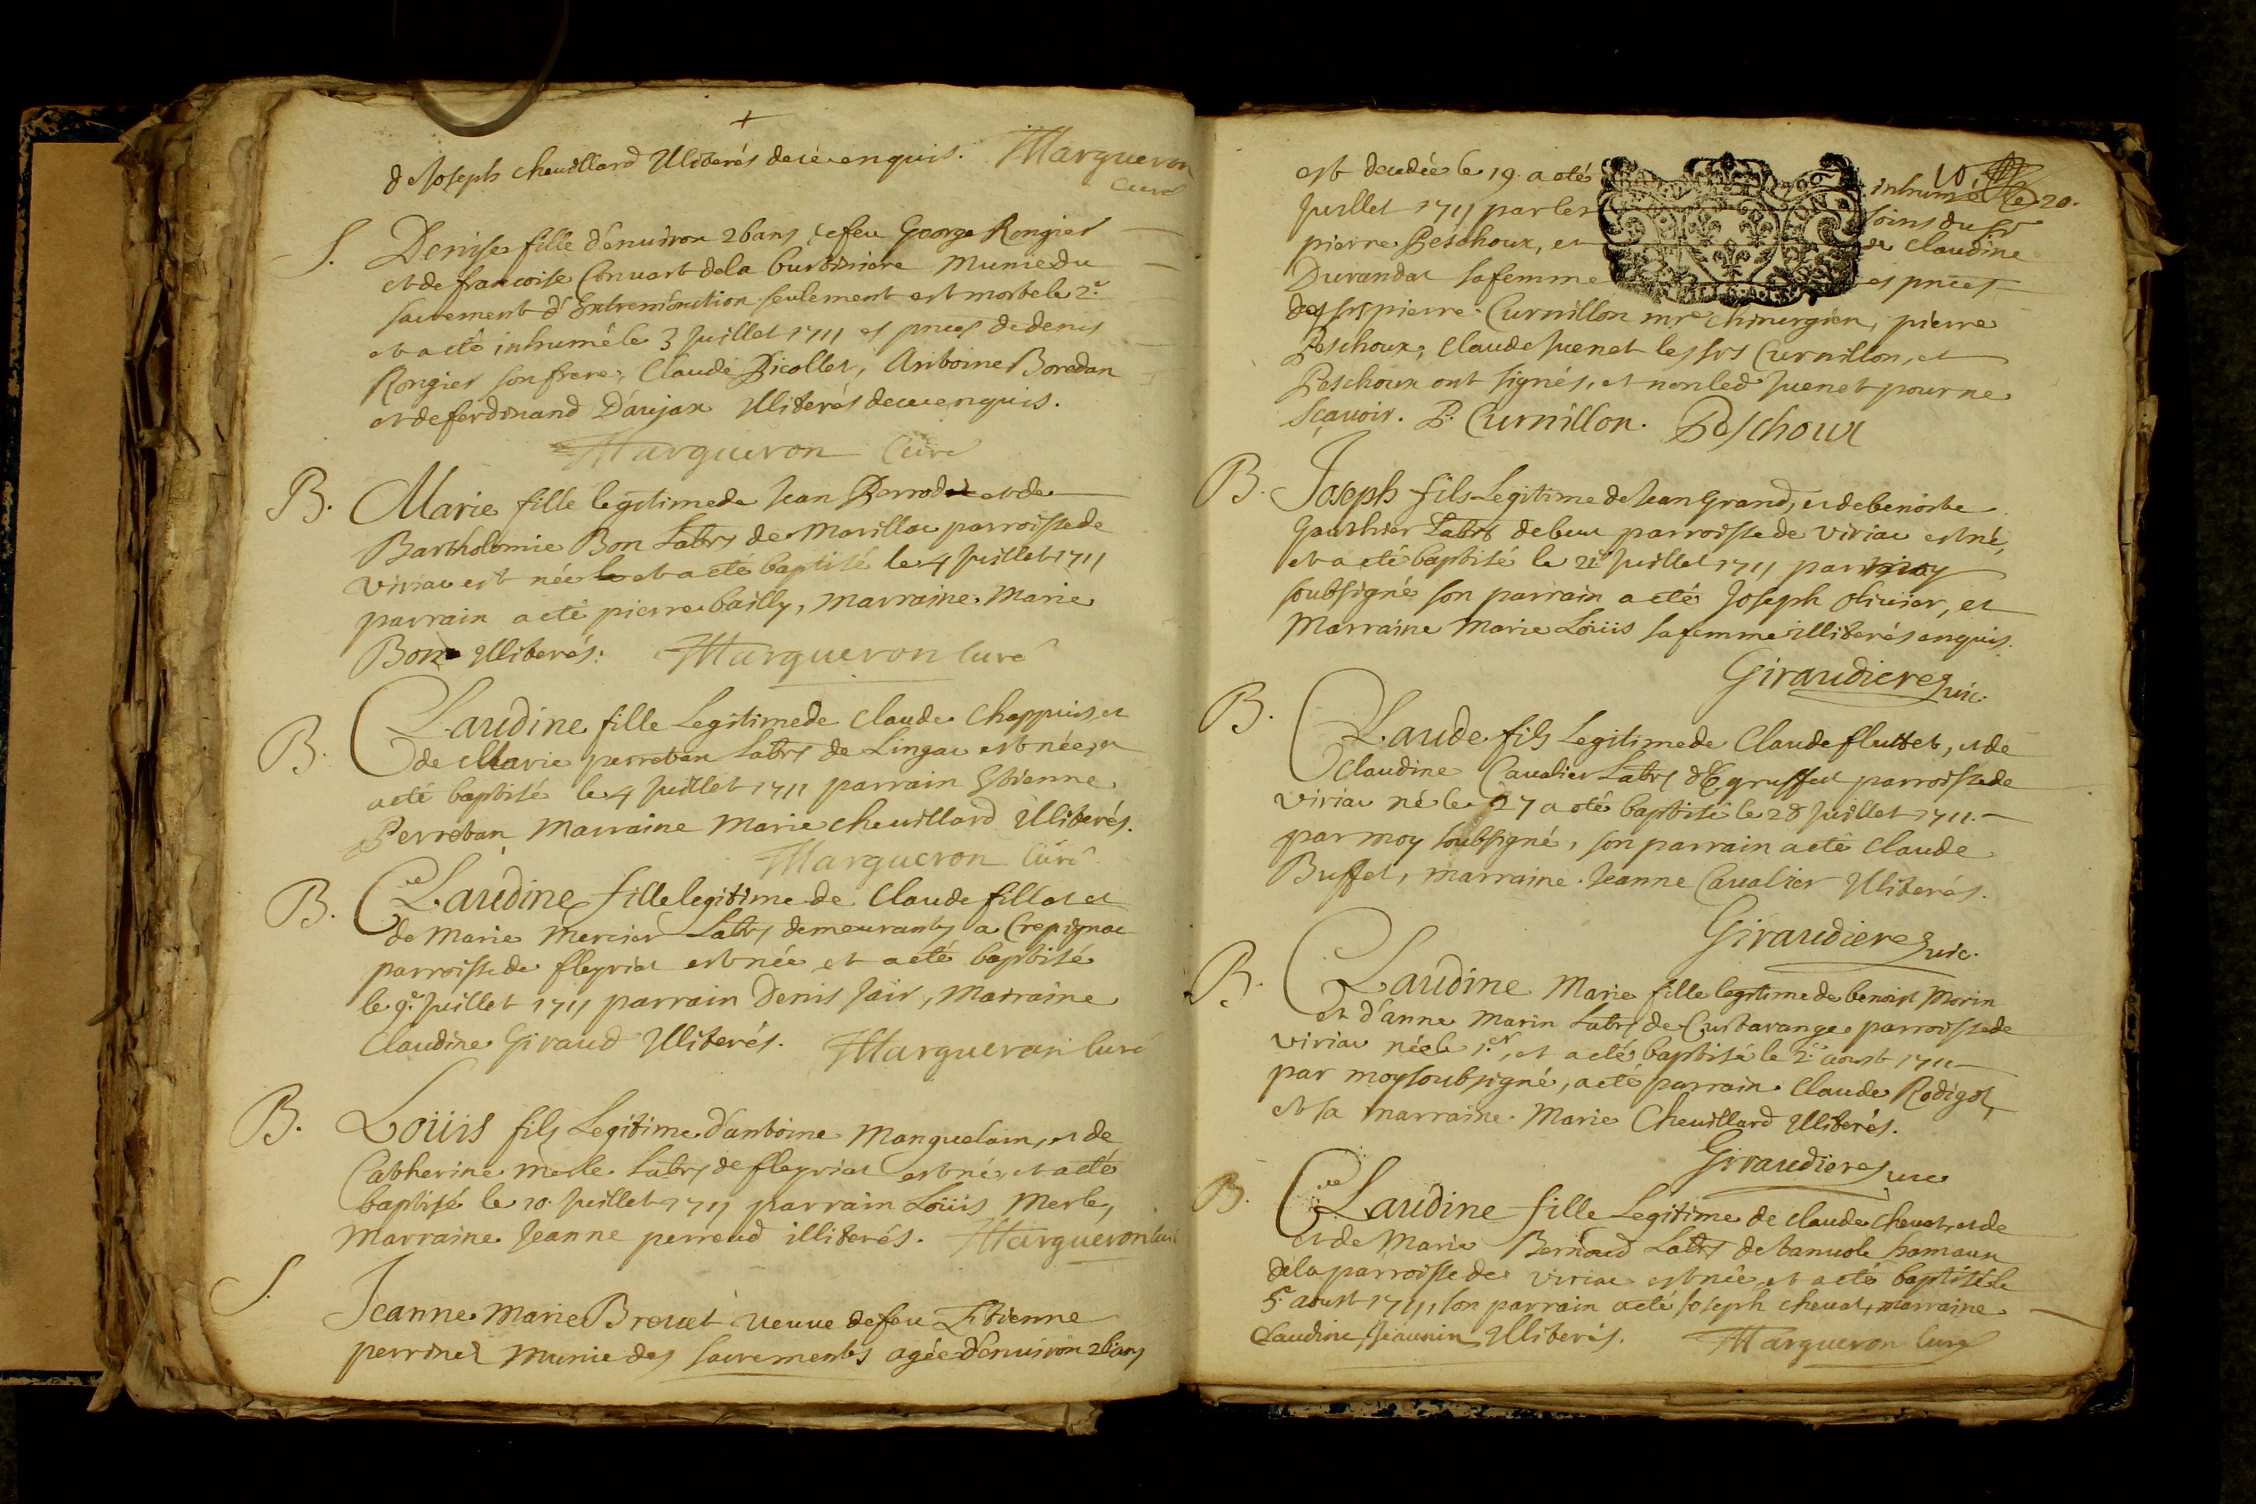 +
de Joseph Chevillard Illiterés de ce enquis. Margueron
Curé
S. Denise fille d'environ 26 ans de feu George Rongier
et de francoise Convart de la burtiniere Munie du
sacrement d'Extremonction seulement est morte le 2e.
et a eté inhumé le 3 Juillet 1711 es pnces de denis
Rongier son frere, Claude Picollet, Antoine Boredan
et de ferdinand D'aujax Illiterés de ce enquis.
Margueron Curé
B. Marie fille legitime de Jean Perrod et de
Bartholomie Bon Labrs de Marillac parroisse de
Viriac est née et a eté baptisé le 4 Juillet 1711
parrain a eté pierre bailly, marraine Marie
Bon Illiterés. Margueron Curé
B. Claudine fille Legitime de Claude Chappuis, et
de Marie perretan Labrs de Lingac est née, et
a eté baptisé le 4 Juillet 1711 parrain Estienne
Perretan Marraine Marie chevillard Illiterés.
Margueron Curé
B. Claudine fille legitime de Claude fillot et
de Marie Mercier Labrs demeurants a Crepignac
parroisse de fleyriat est née et a eté baptisé
le 9e. Juillet 1711 parrain Denis Jair, Marraine
Claudine Giraud Illiterés. Margueron Curé
B. Loüis fils Legitime d'antoine Manguelain, et de
Catherine Merle Labrs de fleyriat est né, et a eté
baptisé le 10. Juillet 1711 parrain Loüis Merle,
Marraine Jeanne perraud illiterés. Margueron Curé
S. Jeanne Marie Brouet veuve de feu Etienne
perrinet munie des sacrements agée d'environ 26 ans
est decedée le 19. a eté inhumé le 20.
Juillet 1711 par les soins du Sr
pierre Peschoux, et de Claudine
Durandat sa femme es pnces
des srs pierre Curnillon mre chirurgien, pierre
Peschoux, Claude Juenet les srs Curnillon, et
Peschoux ont signés, et non led Juenet pour ne
Sçavoir. P. Curnillon. Peschoux
B. Joseph fils Legitime de Jean Grand, et de benoite
Gauthier Labrs de buc parroisse de Viriac est né,
et a eté baptisé le 21e Juillet 1711 par moy
soubsigné son parrain a eté Joseph Olivier, et
Marraine Marie Loüis sa femme illiterés enquis.
Giraudiere vic.
B. Claude fils Legitime de Claude fluttet, et de
Claudine Cavalier Labrs d'Egruffet parroisse de
Viriac né le 27 a eté baptisé le 28 Juillet 1711.
par moy soubsigné, son parrain a eté Claude
Buffet, marraine Jeanne Cavalier Illiterés.
Giraudiere vic.
B. Claudine Marie fille legitime de benoist Morin
et d'anne Marin Labrs de Curtarange parroisse de
Viriac née le 1.er, et a eté baptisé le 2e. aoust 1711
par moy soubsigné, a eté parrain Claude Rodigot,
et sa marraine Marie Chevillard Illiterés.
Giraudiere vic
B. Claudine fille Legitime de Claude Chevat, et de
et de Marie Bernoud Labrs de hameau
de la parroisse de Viriac est née, et a eté baptisé le
5e. aoust 1711, son parrain a eté Joseph Chevat, marraine
Claudine Jeaunin Illiterés. Margueron Curé